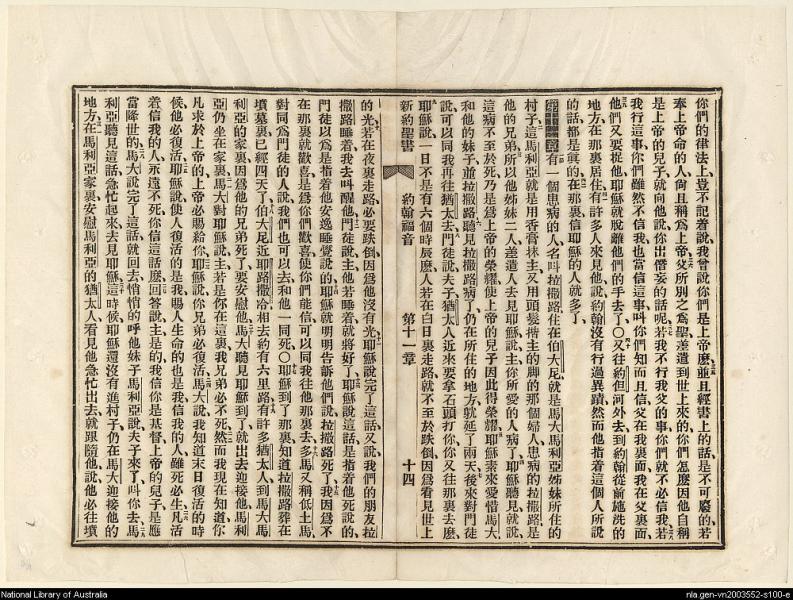 你們的律法上豈不記着說我曾說你們是上帝麼並且經書上的話是不可廢的若
奉上帝命的人尙且稱爲上帝父所別之爲聖差遣到世上來的你們怎麼因他自稱
是上帝的兒子就向他說你出僭妄的話呢若我不行我父的事你們就不必信我若
我行這事你們雖然不信我也當信這事叫你們知而且信父在我裏面而我在父裏面
他們又要捉他耶穌就脫離他們的手去了〇又往約但河外去到約翰從前施洗的
地方在那裏居住有許多人來見他說約翰沒有行過異蹟然而他指着這個人所說
的話都是眞的在那裏信耶穌的人就多了
第十一章有一個患病的人名叫拉撒路住在伯大尼就是馬大馬利亞姊妹所住的
村子這馬利亞就是用香膏抹主又用頭髮揩主的脚的那個婦人患病的拉撒路是
他的兄弟所以他姊妹二人差遣人去見耶穌說主你所愛的人病了耶穌聽見就說
這病不至於死乃是爲上帝的榮耀使上帝的兒子因此得榮耀耶穌素來愛惜馬大
和他的妹子並拉撒路聽見拉撒路病了仍在所住的地方就延了兩天後來對門徒
說可以同我再往猶太去門徒說夫子猶太人近來要拿石頭打你你又往那裏去麼
耶穌說一日不是有六個時辰麼人若在白日裏走路就不至於跌倒因爲看見世上
新約聖書 約翰福音 第十一章 十四
的光若在夜裏走路必要跌倒因爲他沒有光耶穌說完了這話又說我們的朋友拉
撒路睡着我去叫醒他門徒說主他若睡着就將好了耶穌說這話是指着他死說的
門徒以爲是指着他安逸睡覺說的耶穌就明明告訴他們說拉撒路死了我因爲不
在那裏就歡喜是爲你們歡喜使你們能信可以同我往他那裏去多馬又稱低土馬
對同爲門徒的人說我們也可以去和他一同死〇耶穌到了那裏知道拉撒路葬在
墳墓裏已經四天了伯大尼近耶路撒冷相去約有六里路有許多猶太人到馬大馬
利亞的家裏因爲他的兄弟死了要安慰他馬大聽見耶穌到了就出去迎接他馬利
亞仍坐在家裏馬大對耶穌說主若是你在這裏我兄弟必不死然而我現在知道你
凡求於上帝的上帝必賜給你耶穌說你兄弟必復活馬大說我知道末日復活的時
候他必復活耶穌說使人復活的是我賜人生命的也是我信我的人雖死必生凡活
着信我的人永遠不死你信這話麼回答說主是的我信你是基督上帝的兒子是應
當降世的馬大說完了這話就回去悄悄的呼他妹子馬利亞說夫子來了叫你去馬
利亞聽見這話急忙起來去見耶穌這時候耶穌還沒有進村子仍在馬大迎接他的
地方在馬利亞家裏安慰馬利亞的猶太人看見他急忙出去就跟隨他說他必往墳
National Library of Australia
nla.gen-vn2003552-s100-e